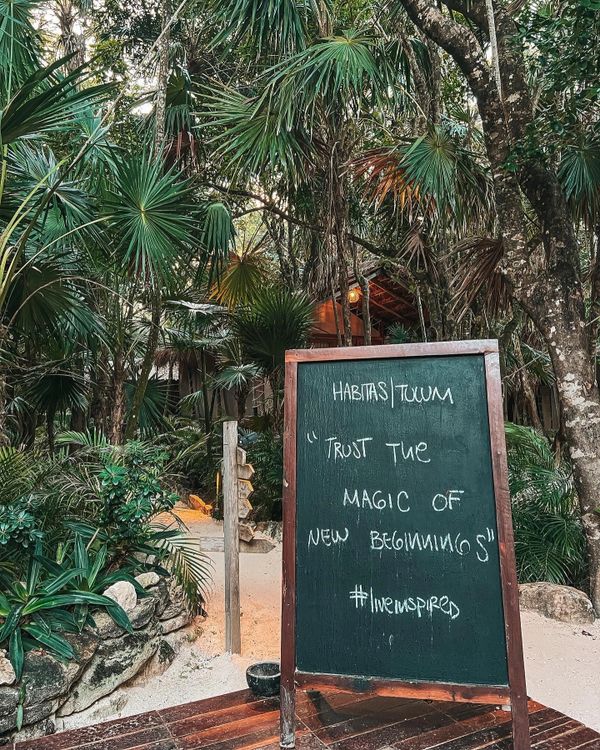 HABITAS|TULUM
"TRUST THE
MAGIC OF
NEW BEGINNINGS"
#liveinspired